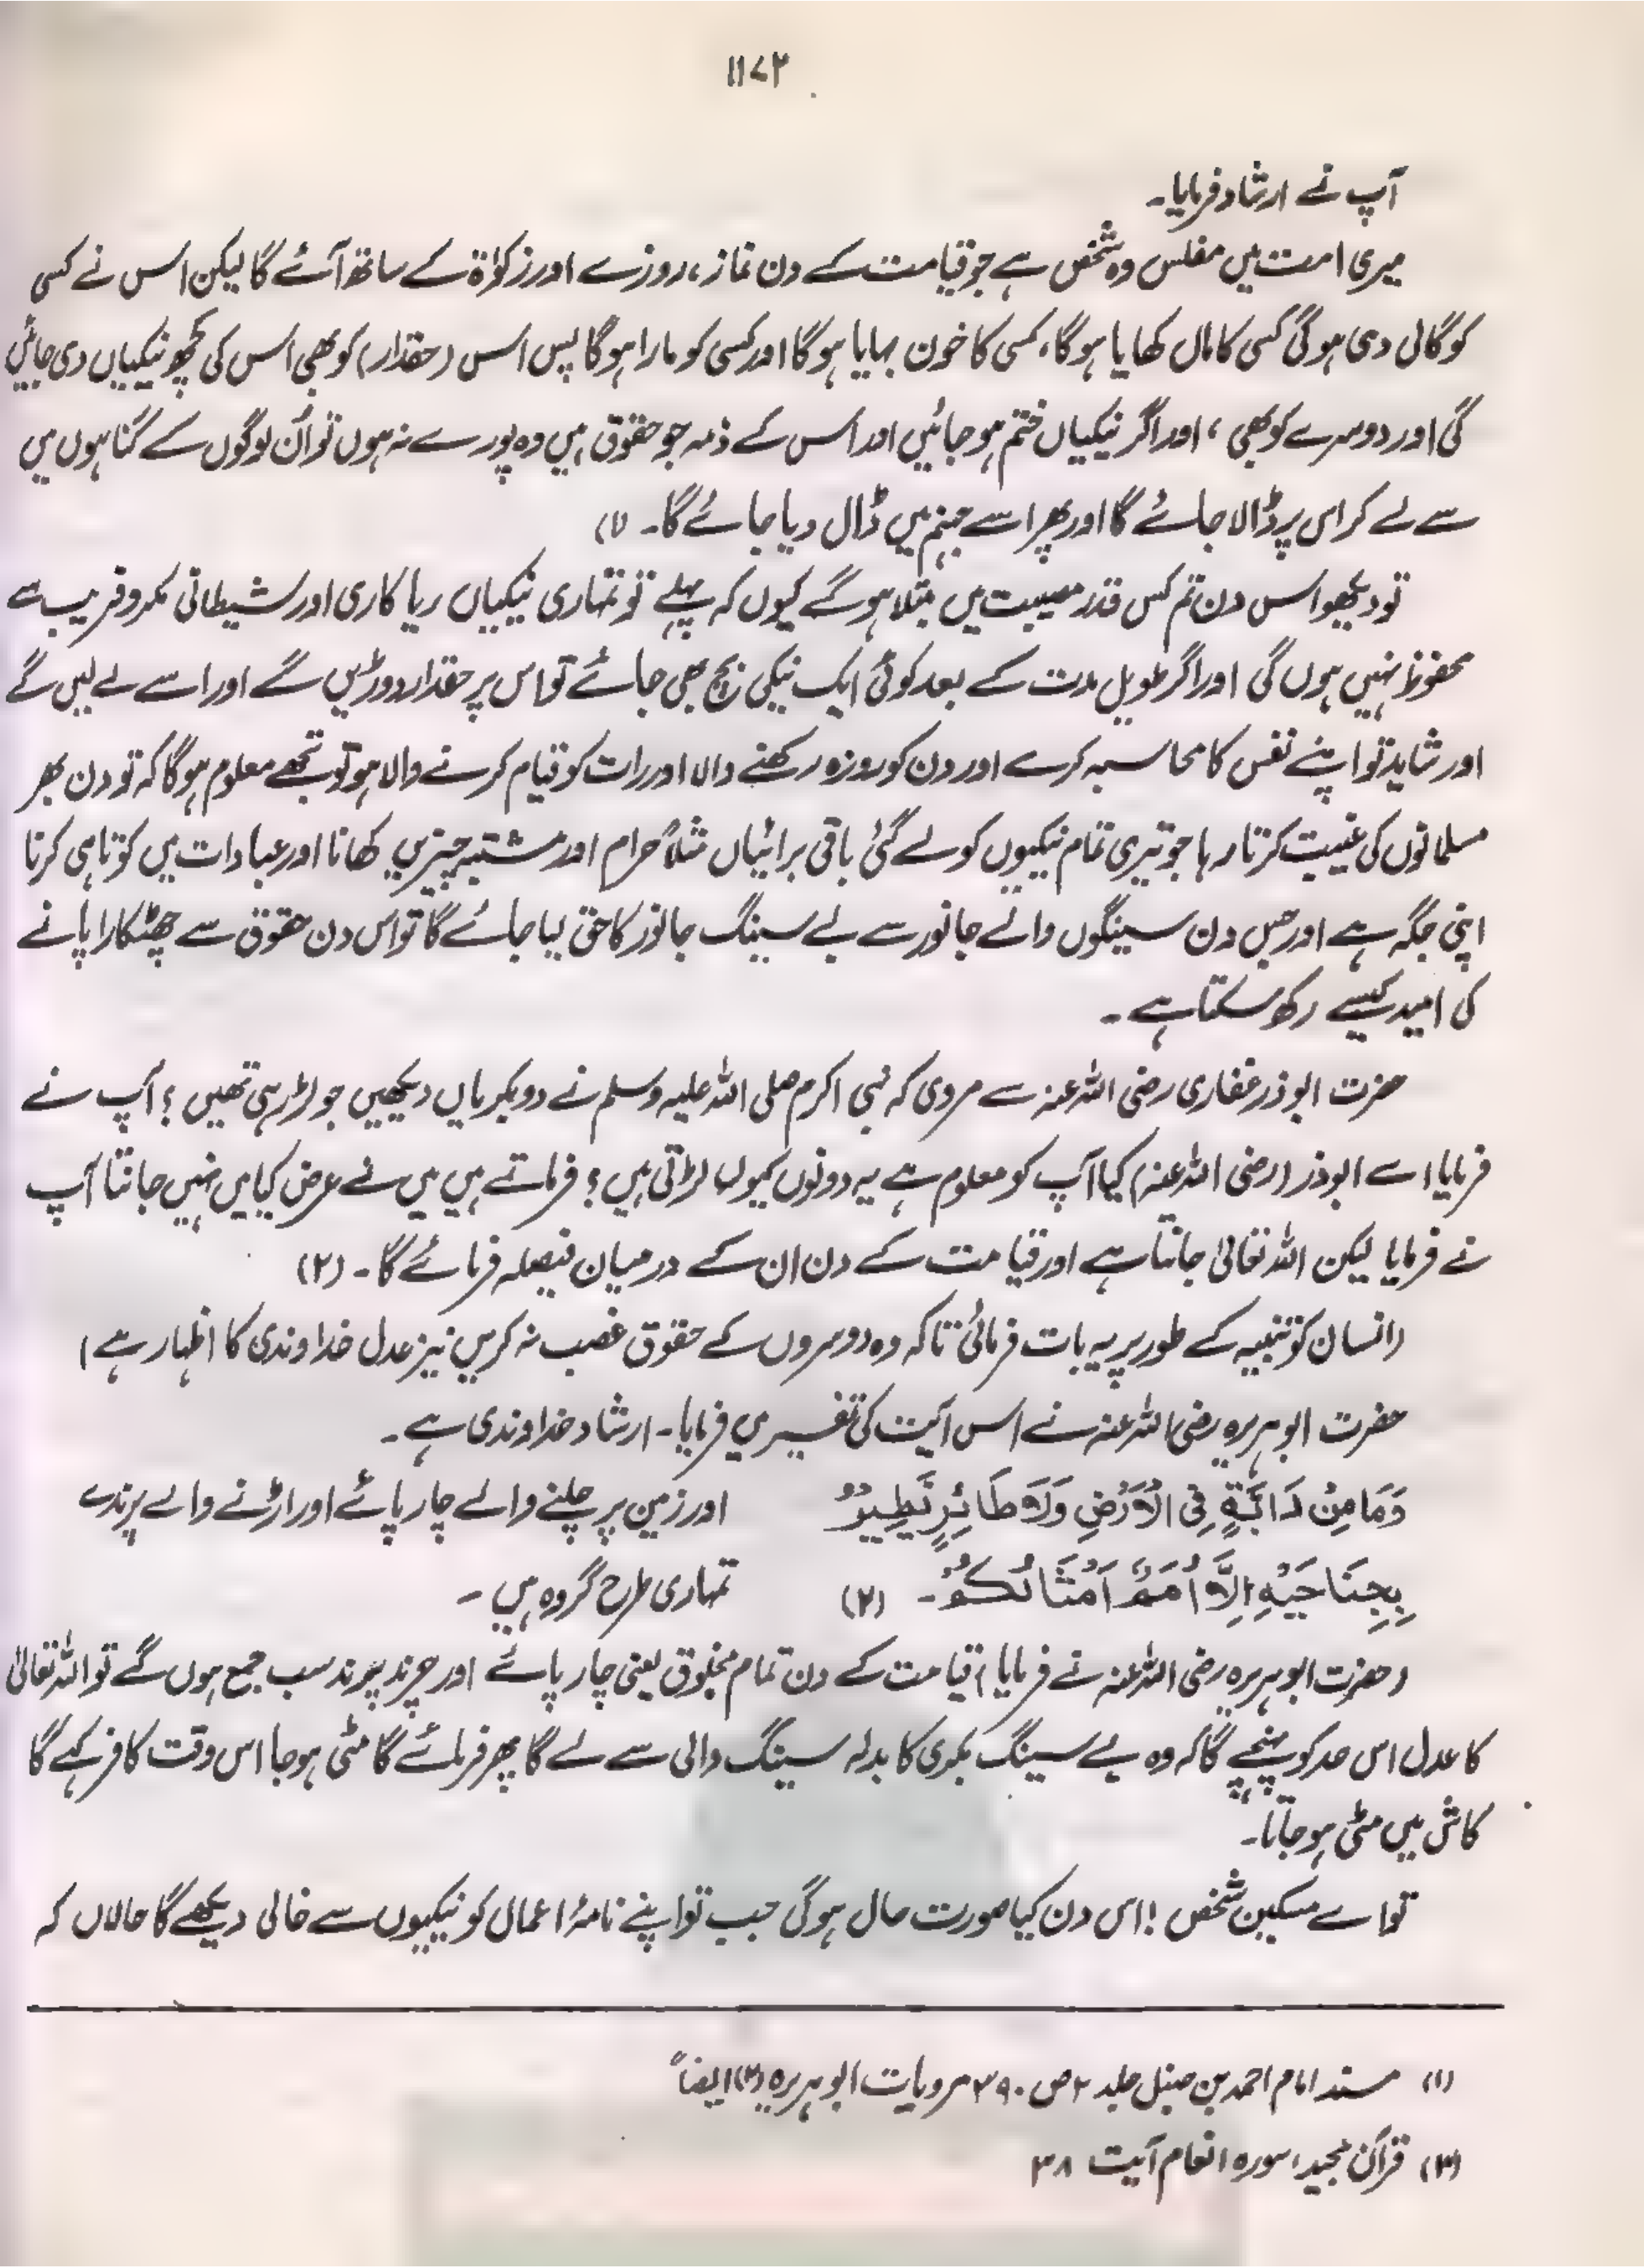 ۱۱۷۲
آپ نے ارشاد فرمایا۔
میری امت میں مفلس وہ شخص ہے جو قیامت کے دن نماز، روزے اور زکوٰۃ کے ساتھ آئے گا لیکن اس نے کسی
کو گالی دی ہو گی کسی کا مال کھایا ہو گا، کسی کا خون بہایا ہو گا اور کسی کو مارا ہو گا پس اس (حقدار) کو بھی اس کی کچھ نیکیاں دی جائیں
گی اور دوسرے کو بھی، اور اگر نیکیاں ختم ہو جائیں اور اس کے ذمہ جو حقوق ہیں وہ پورے نہ ہوں تو اُن لوگوں کے گناہوں میں
سے لے کر اس پر ڈالا جائے گا اور پھر اسے جہنم میں ڈال دیا جائے گا۔ (۱)
تو دیکھو اس دن تم کس قدر مصیبت میں مبتلا ہو گے کیوں کہ پہلے تو تمہاری نیکیاں ریا کاری اور شیطانی مکر و فریب سے
محفوظ نہیں ہوں گی اور اگر طویل مدت کے بعد کوئی ایک نیکی بچ بھی جائے تو اس پر حقدار دوڑیں گے اور اسے لے لیں گے
اور شاید تو اپنے نفس کا محاسبہ کرے اور دن کو روزہ رکھنے والا اور رات کو قیام کرنے والا ہو تو تجھے معلوم ہو گا کہ تو دن بھر
مسلمانوں کی غیبت کرتا رہا جو تیری تمام نیکیوں کو لے گئی باقی برائیاں مثلاً حرام اور مشتبہ چیزیں کھانا اور عبادات میں کوتاہی کرنا
اپنی جگہ ہے اور جس دن سینگوں والے جانور سے بے سینگ جانور کا حق لیا جائے گا تو اس دن حقوق سے چھٹکارا پانے
کی امید کیسے رکھ سکتا ہے۔
حضرت ابوذر غفاری رضی اللہ عنہ سے مروی کہ نبی اکرم صلی اللہ علیہ وسلم نے دو بکریاں دیکھیں جو لڑ رہی تھیں؟ آپ نے
فرمایا اے ابوذر (رضی اللہ عنہ) کیا آپ کو معلوم ہے یہ دونوں کیوں لڑتی ہیں؟ فرماتے ہیں میں نے عرض کیا میں نہیں جانتا آپ
نے فرمایا لیکن اللہ تعالیٰ جانتا ہے اور قیامت کے دن ان کے درمیان فیصلہ فرمائے گا۔ (۲)
(انسان کو تنبیہ کے طور پر یہ بات فرمائی تاکہ وہ دوسروں کے حقوق غصب نہ کریں نیز عدل خداوندی کا اظہار ہے)
حضرت ابوہریرہ رضی اللہ عنہ نے اس آیت کی تفسیر میں فرمایا۔ ارشاد خداوندی ہے۔
وَمَا مِنْ دَابَّةٍ فِي الْأَرْضِ وَلَا طَائِرٍ يَّطِيْرُ
بِجَنَاحَيْهِ إِلَّا أُمَمٌ أَمْثَالُكُمْ۔ (۲)
اور زمین پر چلنے والے چار پائے اور اڑنے والے پرندے
تمہاری طرح گروہ ہیں۔
(حضرت ابوہریرہ رضی اللہ عنہ نے فرمایا) قیامت کے دن تمام مخلوق یعنی چار پائے اور چرند پرند سب جمع ہوں گے تو اللہ تعالیٰ
کا عدل اس حد کو پہنچے گا کہ وہ بے سینگ بکری کا بدلہ سینگ والی سے لے گا پھر فرمائے گا مٹی ہو جا اس وقت کافر کہے گا
کاش میں مٹی ہو جاتا۔
تو اے مسکین شخص! اس دن کیا صورت حال ہو گی جب تو اپنے نامۂ اعمال کو نیکیوں سے خالی دیکھے گا حالاں کہ
(۱) مسند امام احمد بن حنبل جلد ۲ ص ۲۹۰ مرویات ابوہریرہ (۲) ایضاً
(۳) قرآن مجید، سورہ انعام آیت ۳۸